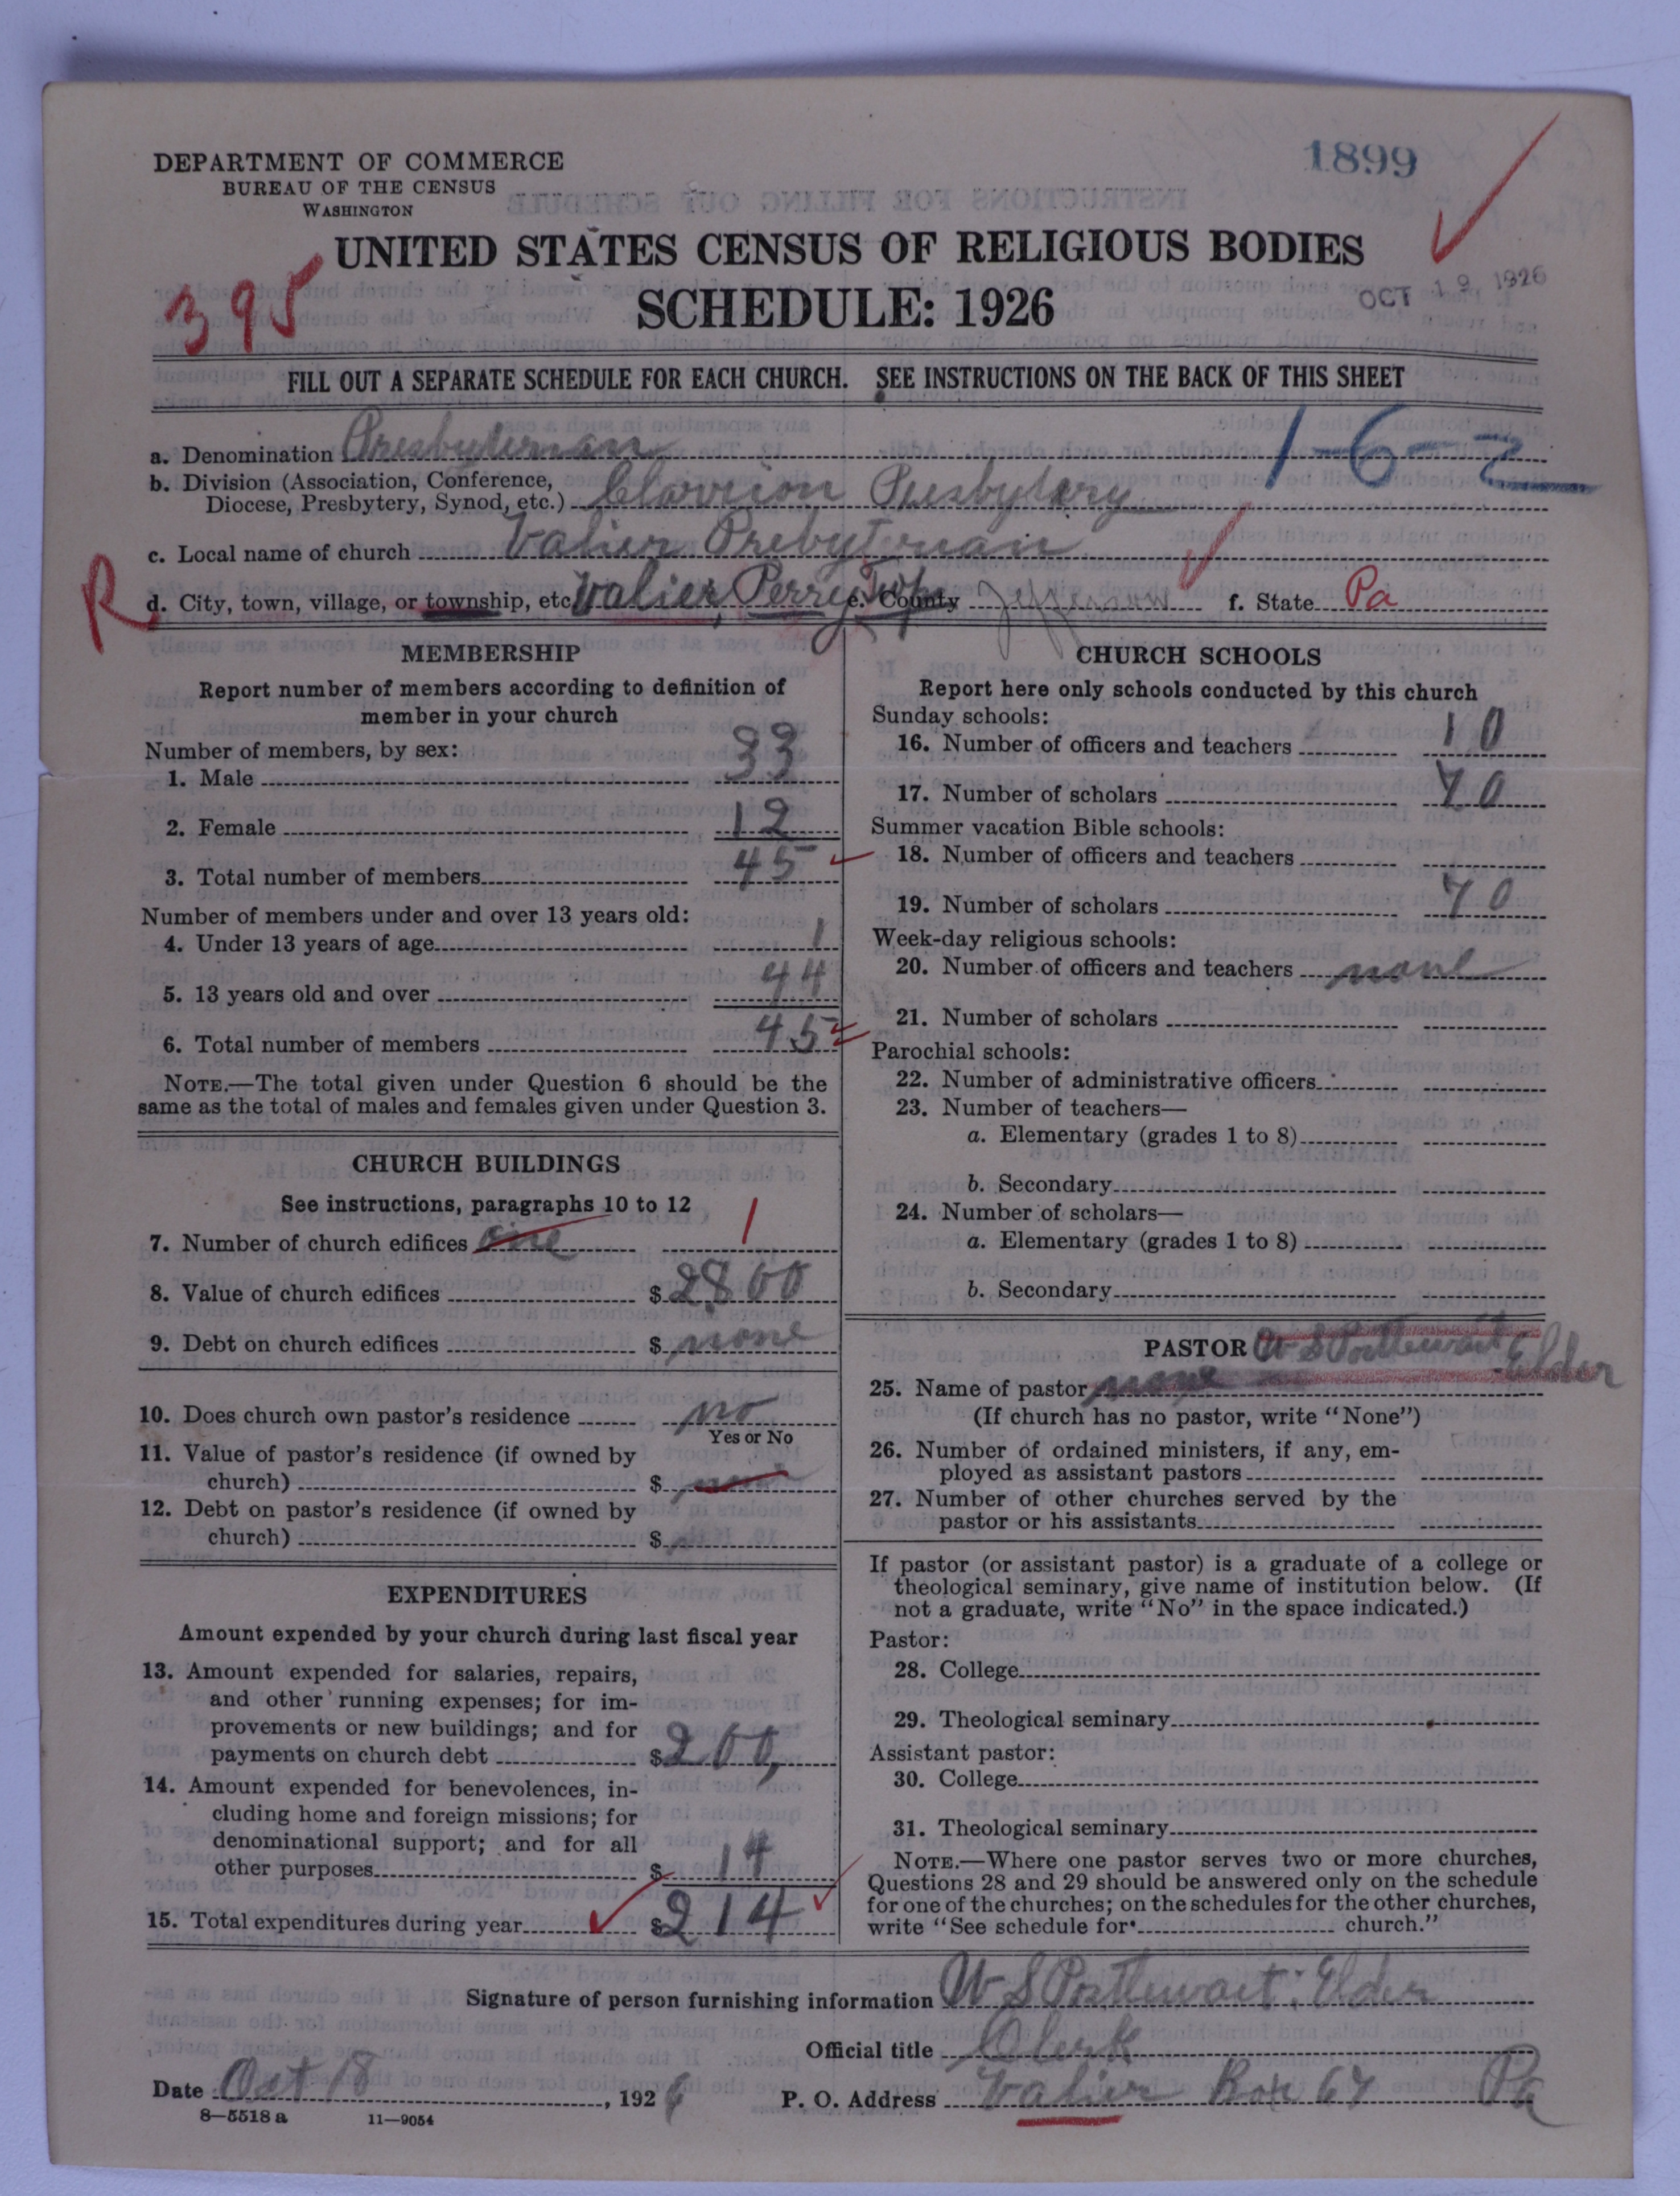 DEPARTMENT OF COMMERCE
BUREAU OF THE CENSUS
WASHINGTON
1899
UNITED STATES CENSUS OF RELIGIOUS BODIES
SCHEDULE: 1926
395
OCT 19 1926
FILL OUT A SEPARATE SCHEDULE FOR EACH CHURCH. SEE INSTRUCTIONS ON THE BACK OF THIS SHEET
a. Denomination Presbyterian
1-6-2
b. Division (Association, Conference,
Diocese, Presbytery, Synod, etc.) Clarion Presbytery
c. Local name of church Valier Prebyterian
R
d. City, town, village, or township, etc. Valier, Perry Twp e. County Jefferson f. State Pa
MEMBERSHIP
Report number of members according to definition of
member in your church
Number of members, by sex:
1. Male 33
2. Female 12
3. Total number of members 45
Number of members under and over 13 years old:
4. Under 13 years of age 1
5. 13 years old and over 44
6. Total number of members 45
NOTE.—The total given under Question 6 should be the
same as the total of males and females given under Question 3.
CHURCH BUILDINGS
See instructions, paragraphs 10 to 12
7. Number of church edifices one 1
8. Value of church edifices $2800
9. Debt on church edifices $ none
10. Does church own pastor's residence no
Yes or No
11. Value of pastor's residence (if owned by
church) $
12. Debt on pastor's residence (if owned by
church) $
EXPENDITURES
Amount expended by your church during last fiscal year
13. Amount expended for salaries, repairs,
and other running expenses; for im-
provements or new buildings; and for
payments on church debt $200,
14. Amount expended for benevolences, in-
cluding home and foreign missions; for
denominational support; and for all
other purposes $ 14
15. Total expenditures during year $214
CHURCH SCHOOLS
Report here only schools conducted by this church
Sunday schools:
16. Number of officers and teachers 10
17. Number of scholars 70
Summer vacation Bible schools:
18. Number of officers and teachers
19. Number of scholars 70
Week-day religious schools:
20. Number of officers and teachers none
21. Number of scholars
Parochial schools:
22. Number of administrative officers
23. Number of teachers—
a. Elementary (grades 1 to 8)
b. Secondary
24. Number of scholars—
a. Elementary (grades 1 to 8)
b. Secondary
PASTOR W S Postlewait Elder
25. Name of pastor none
(If church has no pastor, write "None")
26. Number of ordained ministers, if any, em-
ployed as assistant pastors
27. Number of other churches served by the
pastor or his assistants
If pastor (or assistant pastor) is a graduate of a college or
theological seminary, give name of institution below. (If
not a graduate, write "No" in the space indicated.)
Pastor:
28. College
29. Theological seminary
Assistant pastor:
30. College
31. Theological seminary
NOTE.—Where one pastor serves two or more churches,
Questions 28 and 29 should be answered only on the schedule
for one of the churches; on the schedules for the other churches,
write "See schedule for church."
Signature of person furnishing information W S Postlewait: Elder
Official title Clerk
Date Oct 18, 1926 P. O. Address Valier Box 67 Pa
8—5518 a 11—9054